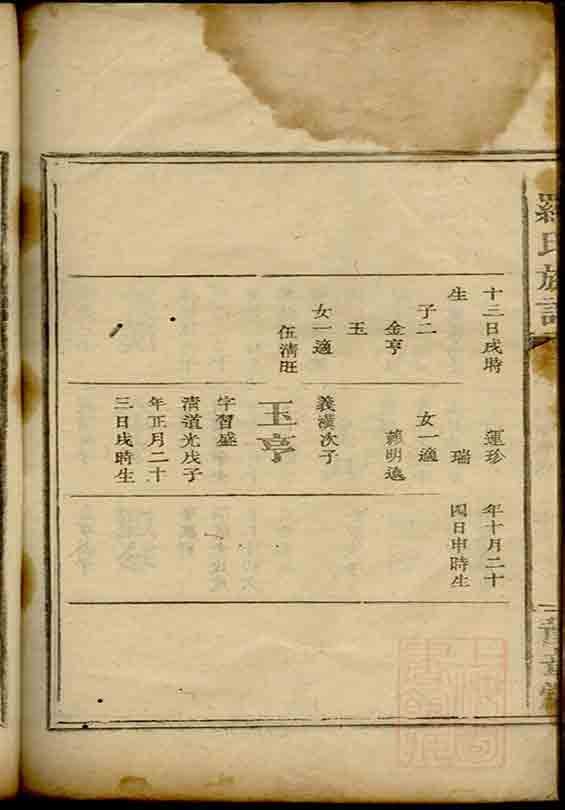 羅氏族譜
十三日戌時
生
子二
金亨
玉
女一適
伍清旺
運珍
瑞
女一適
賴明遠
義漢次子
玉亨
字習盛
清道光戊子
年正月二十
三日戌時生
年十月二十
四日申時生
豫章堂